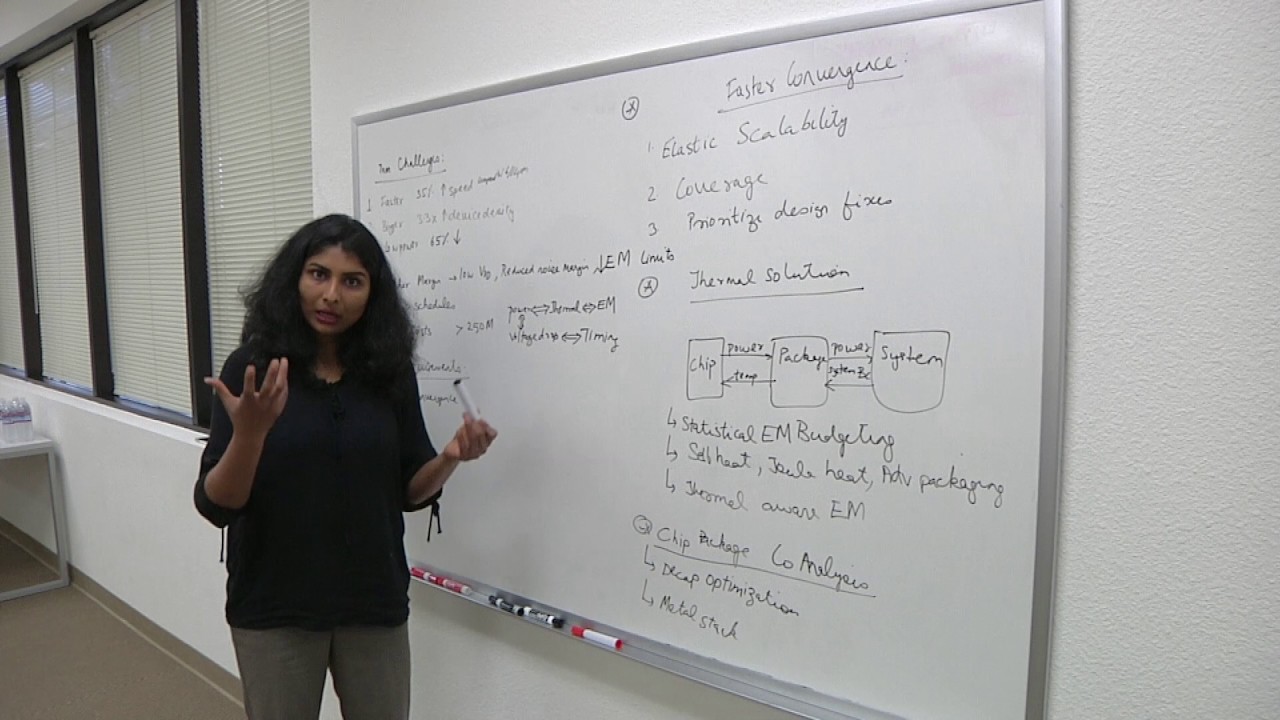 Challenges:
1 Faster 35% ↑ speed compared to
33x ↑ device density
power 65% ↓
Margin → low VDD, Reduced noise Margin ↓ EM limits
schedules
> 250M
power ⇔ Thermal ⇔ EM
voltage drop ⇔ Timing
Faster Convergence:
1. Elastic Scalability
2 Coverage
3 Prioritize design fixes
Thermal Solution
Chip
power
temp
Package
power
System
↳ Statistical EM Budgeting
↳ Self heat, Joule heat, Adv packaging
↳ Thermal aware EM
Chip Package Co Analysis
↳ Decap Optimization
↳ Metal Stack